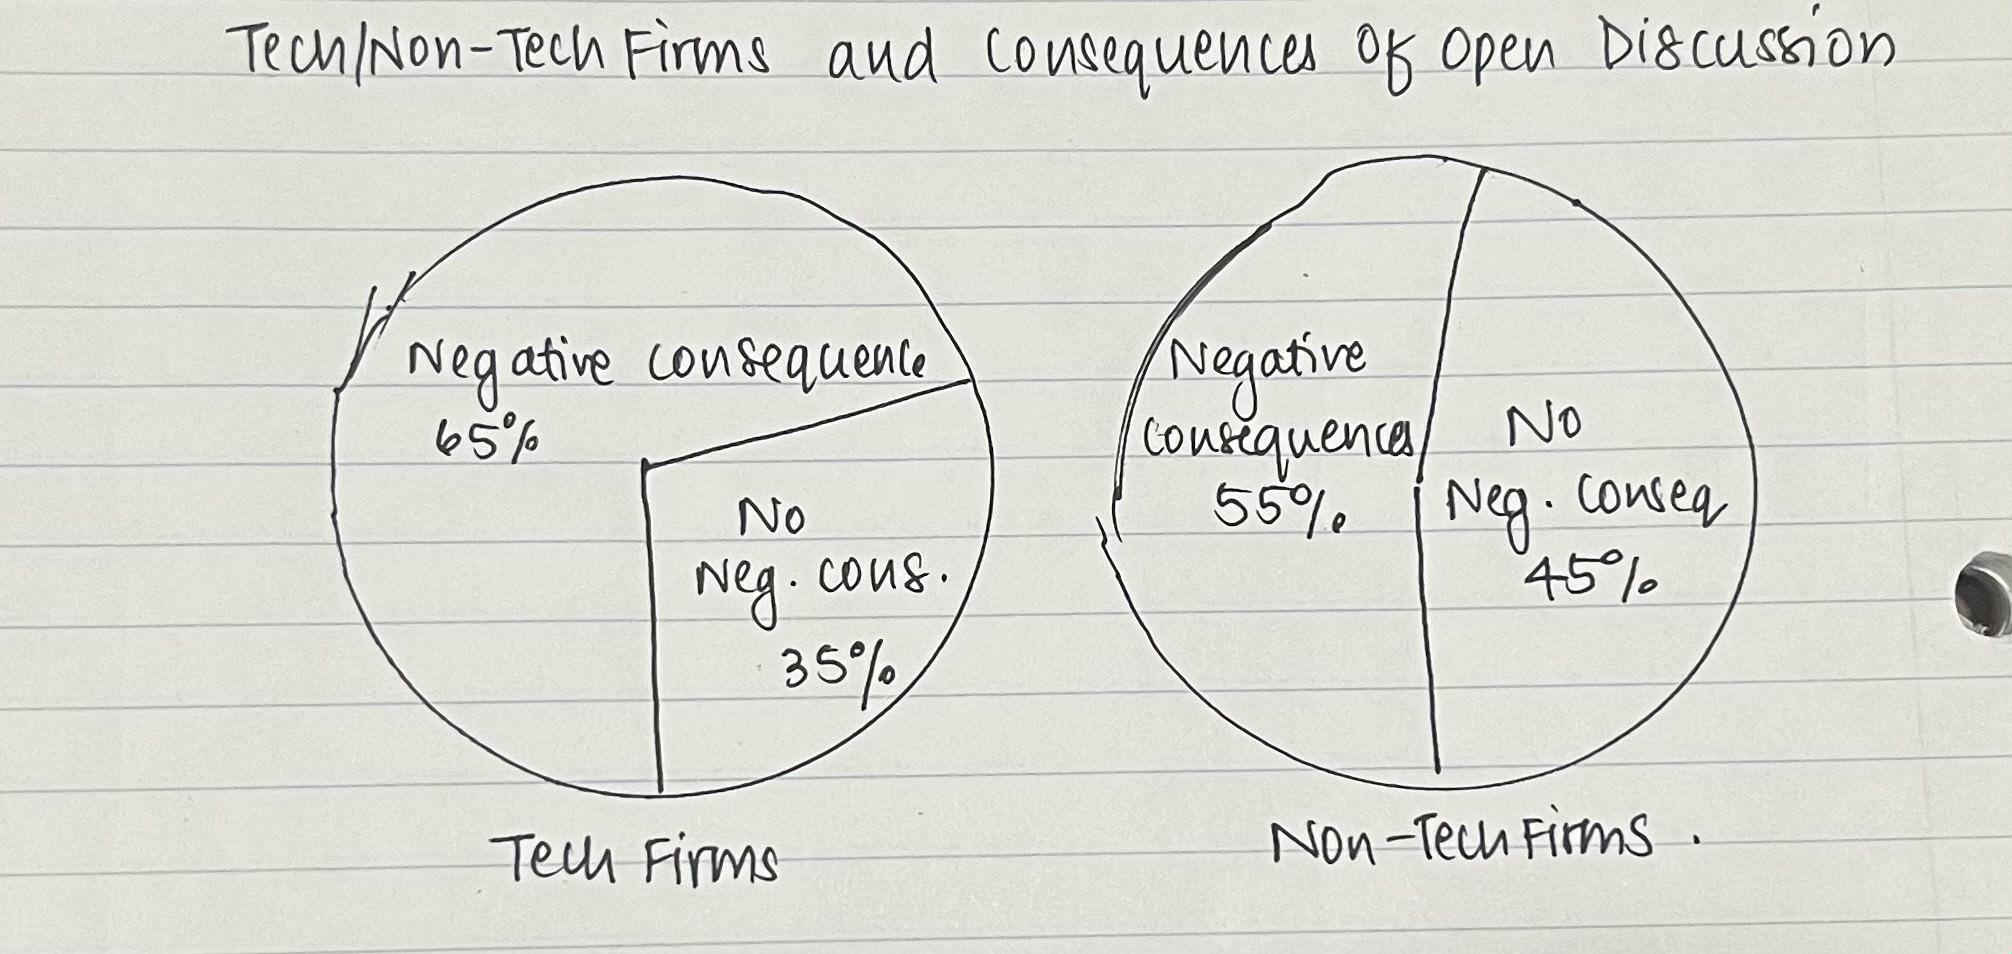 Tech/Non-Tech Firms and Consequences Of Open Discussion
Negative consequence
65%
No
Neg. cons.
35%
Tech Firms
Negative
Consequences
55%
No
Neg. Conseq
45%
Non-Tech Firms.